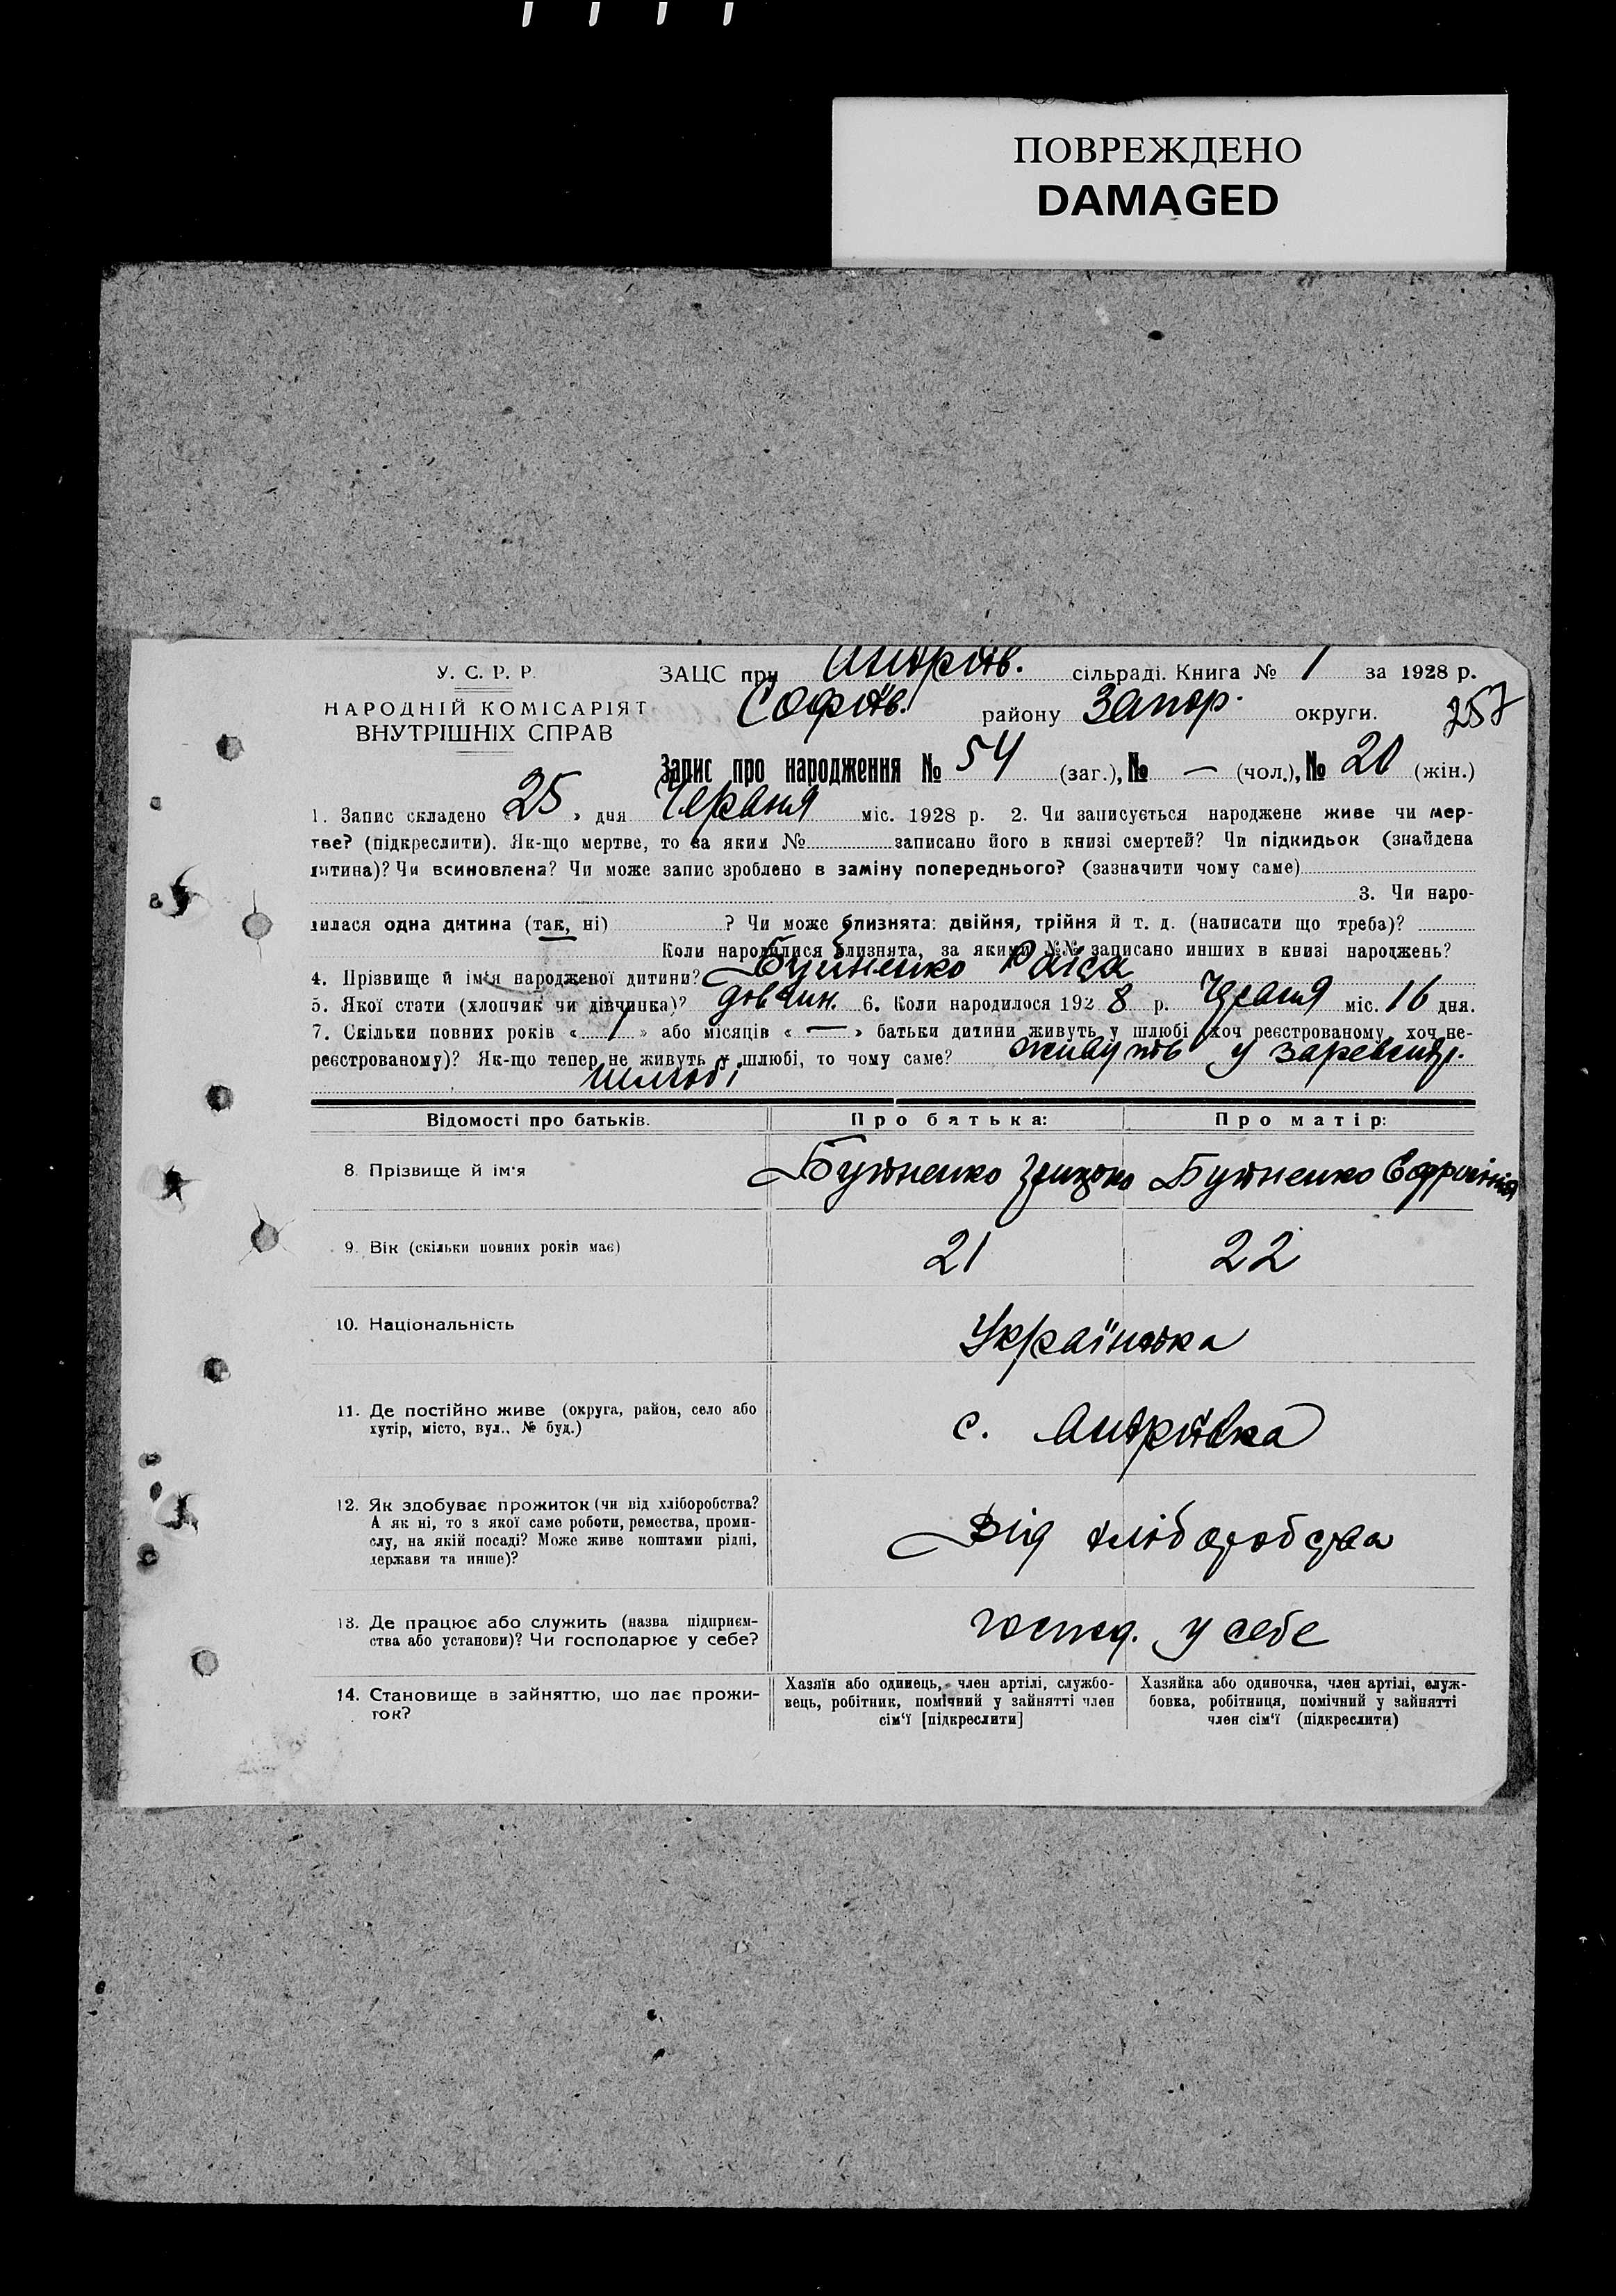 ПОВРЕЖДЕНО
DAMAGED
У. С. Р. Р.
НАРОДНІЙ КОМІСАРІЯТ
ВНУТРІШНІХ СПРАВ
ЗАЦС при Андріїв. сільраді. Книга № 1 за 1928 р.
Софіїв. району Запор. округи. 257
Запис про народження № 54 (заг.), № — (чол.), № 20 (жін.)
1. Запис складено « 25 » дня Червня міс. 1928 р. 2. Чи записується народжене живе чи мер-
тве? (підкреслити). Як-що мертве, то за яким № записано його в книзі смертей? Чи підкидьок (знайдена
дитина)? Чи всиновлена? Чи може запис зроблено в заміну попереднього? (зазначити чому саме)
3. Чи наро-
дилася одна дитина (так, ні) ? Чи може близнята: двійня, трійня й т. д. (написати що треба)?
Коли народилися близнята, за якими №№ записано инших в книзі народжень?
4. Прізвище й ім'я народженої дитини? Раїса
5. Якої стати (хлопчик чи дівчинка)? дівчин. 6. Коли народилося 1928 р. Червня міс. 16 дня.
7. Скільки повних років « 1 » або місяців « — » батьки дитини живуть у шлюбі (хоч реєстрованому, хоч не-
реєстрованому)? Як-що тепер не живуть у шлюбі, то чому саме? живуть у
шлюбі
Відомості про батьків. Про батька: Про матір:
8. Прізвище й ім'я
9. Вік (скільки повних років має) 21 22
10. Національність Українська
11. Де постійно живе (округа, район, село або
хутір, місто, вул., № буд.) с. Андріївка
12. Як здобуває прожиток (чи від хліборобства?
А як ні, то з якої саме роботи, ремества, проми-
слу, на якій посаді? Може живе коштами рідні,
держави та инше)? Від хліборобства
13. Де працює або служить (назва підприєм-
ства або установи)? Чи господарює у себе? господ. у себе
14. Становище в зайняттю, що дає прожи-
ток?
Хазяїн або одинець, член артілі, службо-
вець, робітник, помічний у зайнятті член
сім'ї [підкреслити]
Хазяйка або одиночка, член артілі, служ-
бовка, робітниця, помічний у зайнятті
член сім'ї (підкреслити)